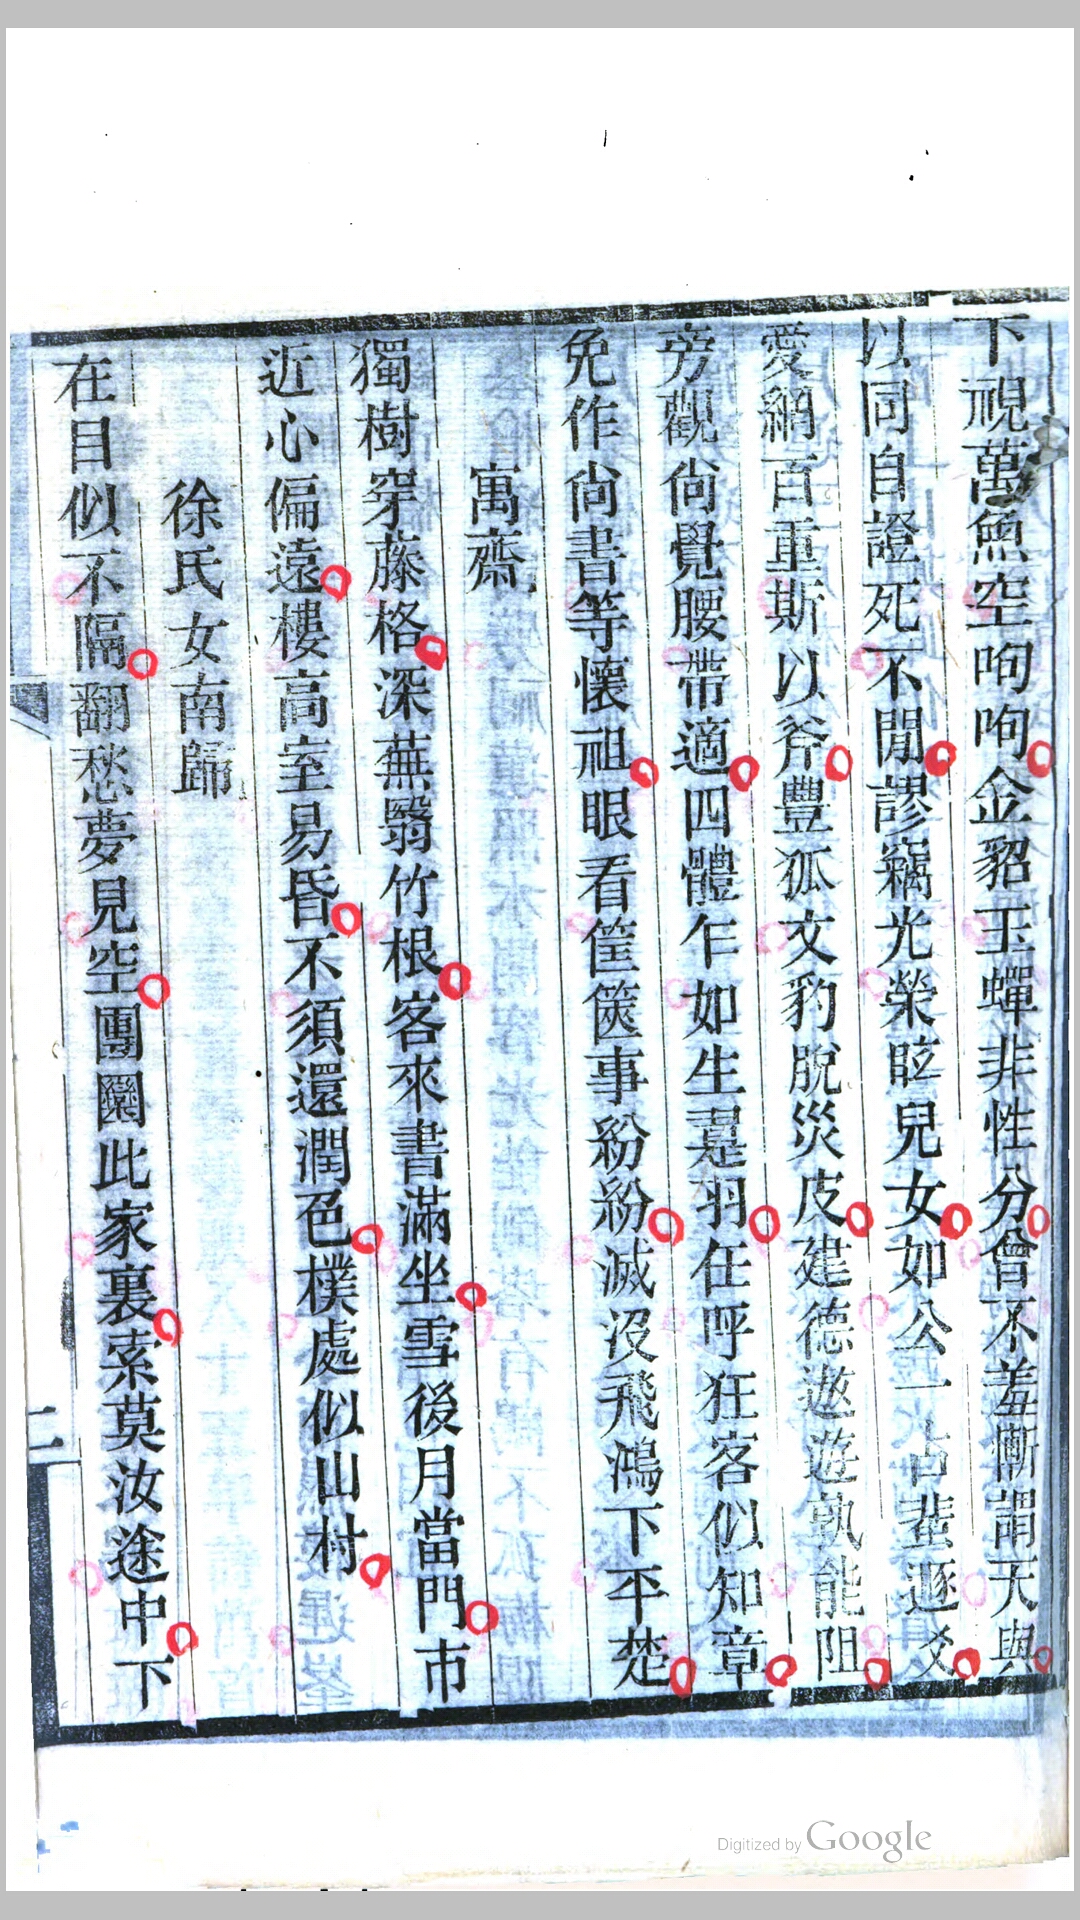 下視萬魚空呴呴金貂玉蟬非性分曾不羞慚謂天與
以同自證死不閒謬竊光榮眩兒女如公一占蜚遯爻
愛網百重斯以斧豐狐文豹脫災皮建德遨遊孰能阻
旁觀尙覺腰帶適四體乍如生羽任呼狂客似知章
免作尙書等懷祖眼看筐篋事紛紛滅沒飛鴻下平楚
寓齋
獨樹穿藤格深蕪翳竹根客來書滿坐雪後月當門市
近心偏遠樓高室易昏不須還潤色樸處似山村
徐氏女南歸
在目似不隔翻愁夢見空團圞此家裏索莫汝途中下
二
Digitized by Google